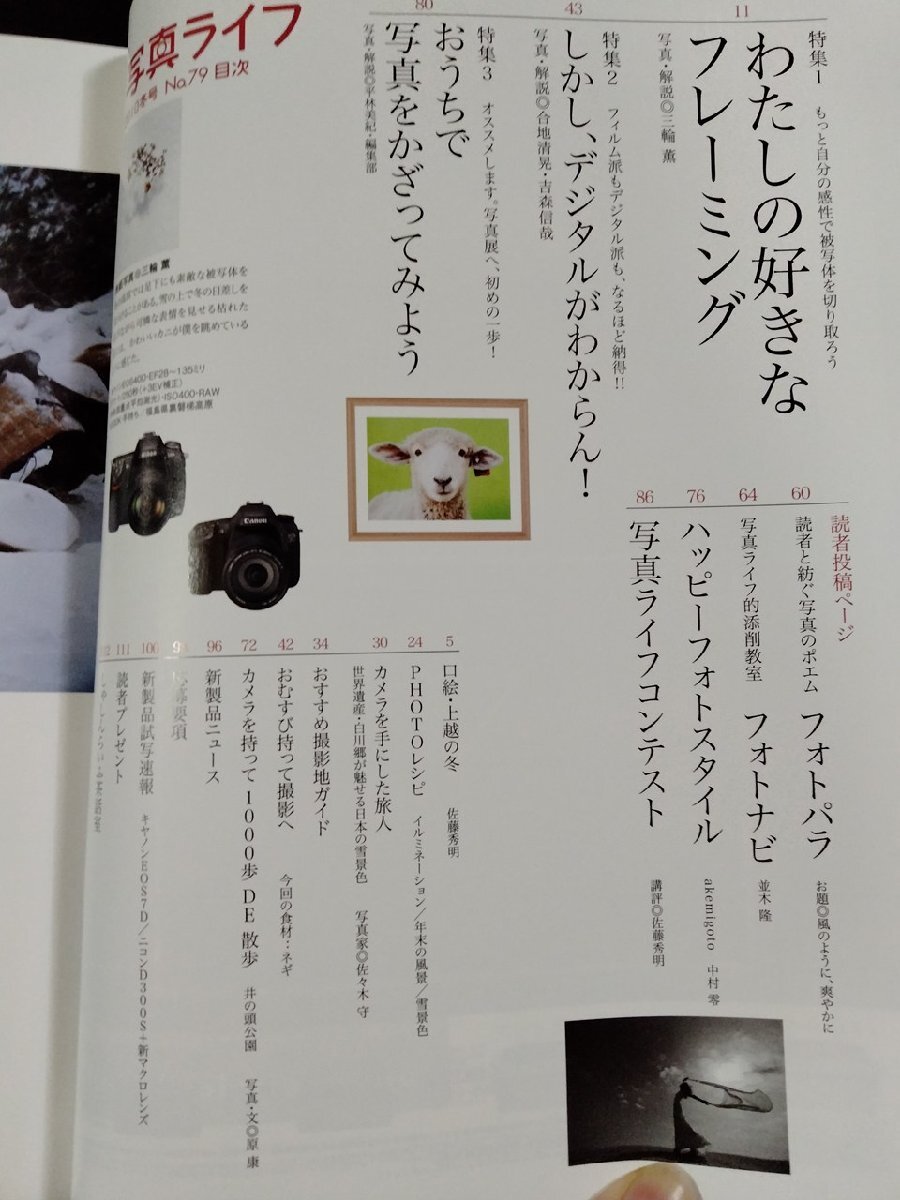 写真ライフ
冬号 No.79 目次
11
特集1 もっと自分の感性で被写体を切り取ろう
わたしの好きな
フレーミング
写真・解説◎三輪 薫
43
特集2 フィルム派もデジタル派も、なるほど納得!!
しかし、デジタルがわからん！
写真・解説◎合地清晃・吉森信哉
80
特集3 オススメします。写真展へ、初めの一歩！
おうちで
写真をかざってみよう
写真・解説◎平林美紀・編集部
写真◎三輪 薫
山足下にも素敵な被写体を
ことがある。雪の上で冬の日差しを
可憐な表情を見せる枯れた
かわいいカニが僕を眺めている
に感じた。
EF28〜135ミリ
(+3EV補正)
ISO400・RAW
手持ち 福島県裏磐梯高原
Canon
読者投稿ページ
60
読者と紡ぐ写真のポエム フォトパラ お題◎風のように、爽やかに
64
写真ライフ的添削教室 フォトナビ 並木 隆
76
ハッピーフォトスタイル akemigoto 中村 零
86
写真ライフコンテスト 講評◎佐藤秀明
5
口絵・上越の冬 佐藤秀明
24
PHOTOレシピ イルミネーション／年末の風景／雪景色
30
カメラを手にした旅人
世界遺産・白川郷が魅せる日本の雪景色 写真家◎佐々木 守
34
おすすめ撮影地ガイド
42
おむすび持って撮影へ 今回の食材…ネギ
72
カメラを持って1000歩 DE 散歩 井の頭公園 写真・文◎原 康
96
新製品ニュース
要項
100
新製品試写速報 キヤノンEOS7D／ニコンD300S＋新マクロレンズ
111
読者プレゼント